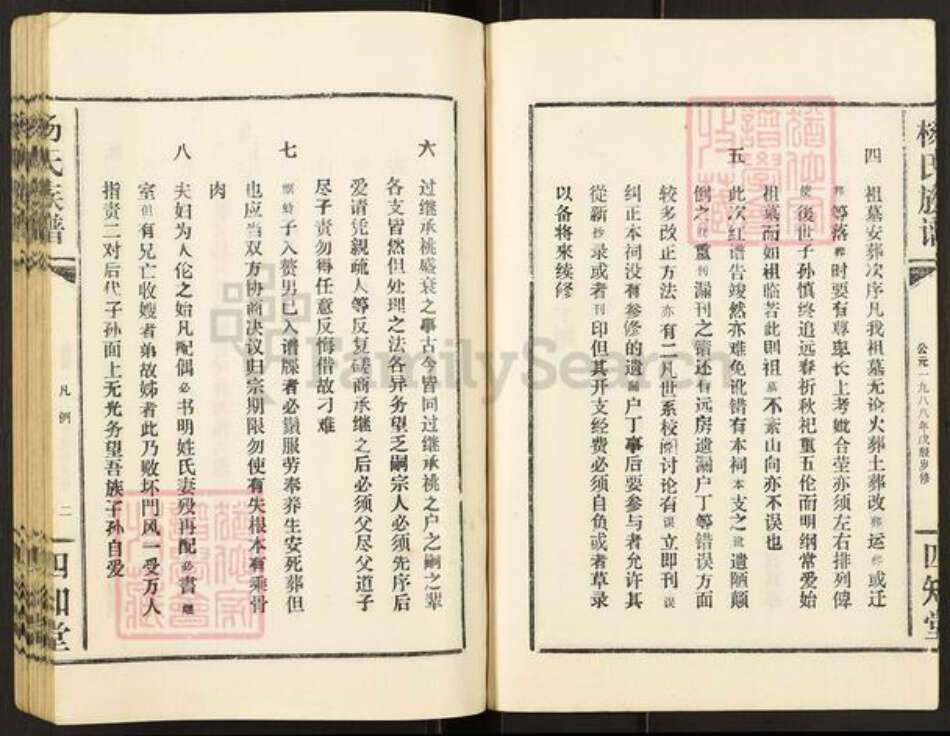 杨氏族谱
公元一九八八年戊辰岁修
四知堂
四
祖墓安葬次序凡我祖墓无论火葬土葬改葬运葬或迁
葬等落葬时要有尊卑长上考妣合茔亦须左右排列俾
使後世子孙慎终追远春祈秋祀重五伦而明纲常爱始
祖墓而如祖临若此则祖墓不紊山向亦不误也
五
此次红谱告竣然亦难免讹错有本祠本支之讹遗陋颠
倒之处重刊漏刊之错还有远房遗漏户丁等错误方面
较多改正方法亦有二凡世系校阅讨论有误立即刊误
纠正本祠没有参修的遗漏户丁事后要参与者允许其
從新抄录或者刊印但其开支经费必须自负或者草录
以备将来续修
六
过继承祧盛衰之事古今皆同过继承祧之户之嗣之辈
各支皆然但处理之法各异务望乏嗣宗人必须先序后
爱请凭親疏人等反复磋商承继之后必须父尽父道子
尽子责勿得任意反悔借故刁难
七
螟蛉子入赘男已入谱牒者必须服劳奉养生安死葬但
也应当双方协商决议归宗期限勿使有失根本有乘骨
肉
八
夫妇为人伦之始凡配偶必书明姓氏妻殁再配必書继
室但有兄亡收嫂者弟故娣者此乃败坏門风一受万人
指责二对后代子孙面上无光务望吾族子孙自爱
杨氏族谱
凡例
二
四知堂
FamilySearch